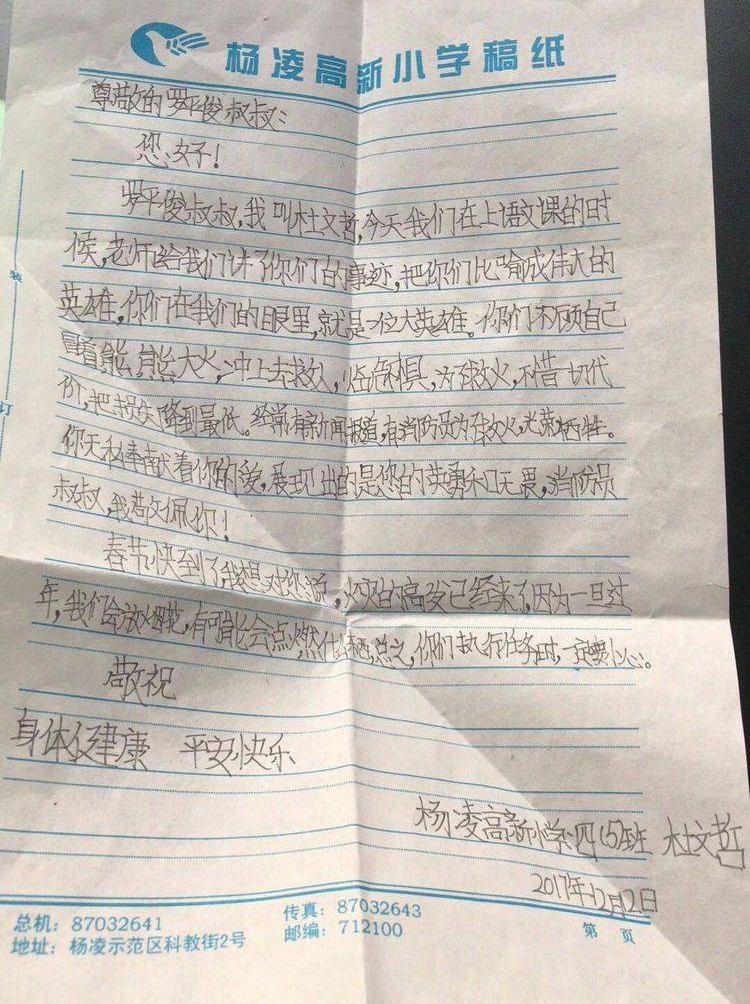 杨凌高新小学稿纸
尊敬的罗平俊叔叔：
您好！
罗平俊叔叔，我叫杜文哲，今天我们在上语文课的时
候，老师给我们讲了你们的事迹，把你们比喻成伟大的
英雄，你们在我们的眼里，就是一位大英雄。你们不顾自己
冒着熊熊大火，冲上去救人，临危不惧，为了救火，不惜一切代
价，把损失降到最低。经常有新闻报道，有消防员为了救火，光荣牺牲。
你无私奉献着你的爱，展现出的是您的英勇和无畏，消防员
叔叔，我敬佩你！
春节快到了我想对您说，火灾的高发已经来了，因为一旦过
年，我们会放烟花，有可能会点燃什么东西，总之，你们执行任务时，一定要小心。
敬祝
身体健康 平安快乐
杨凌高新小学四(5)班 杜文哲
2017年12月12日
总机：87032641 传真：87032643
地址：杨凌示范区科教街2号 邮编：712100
第 页
装
订